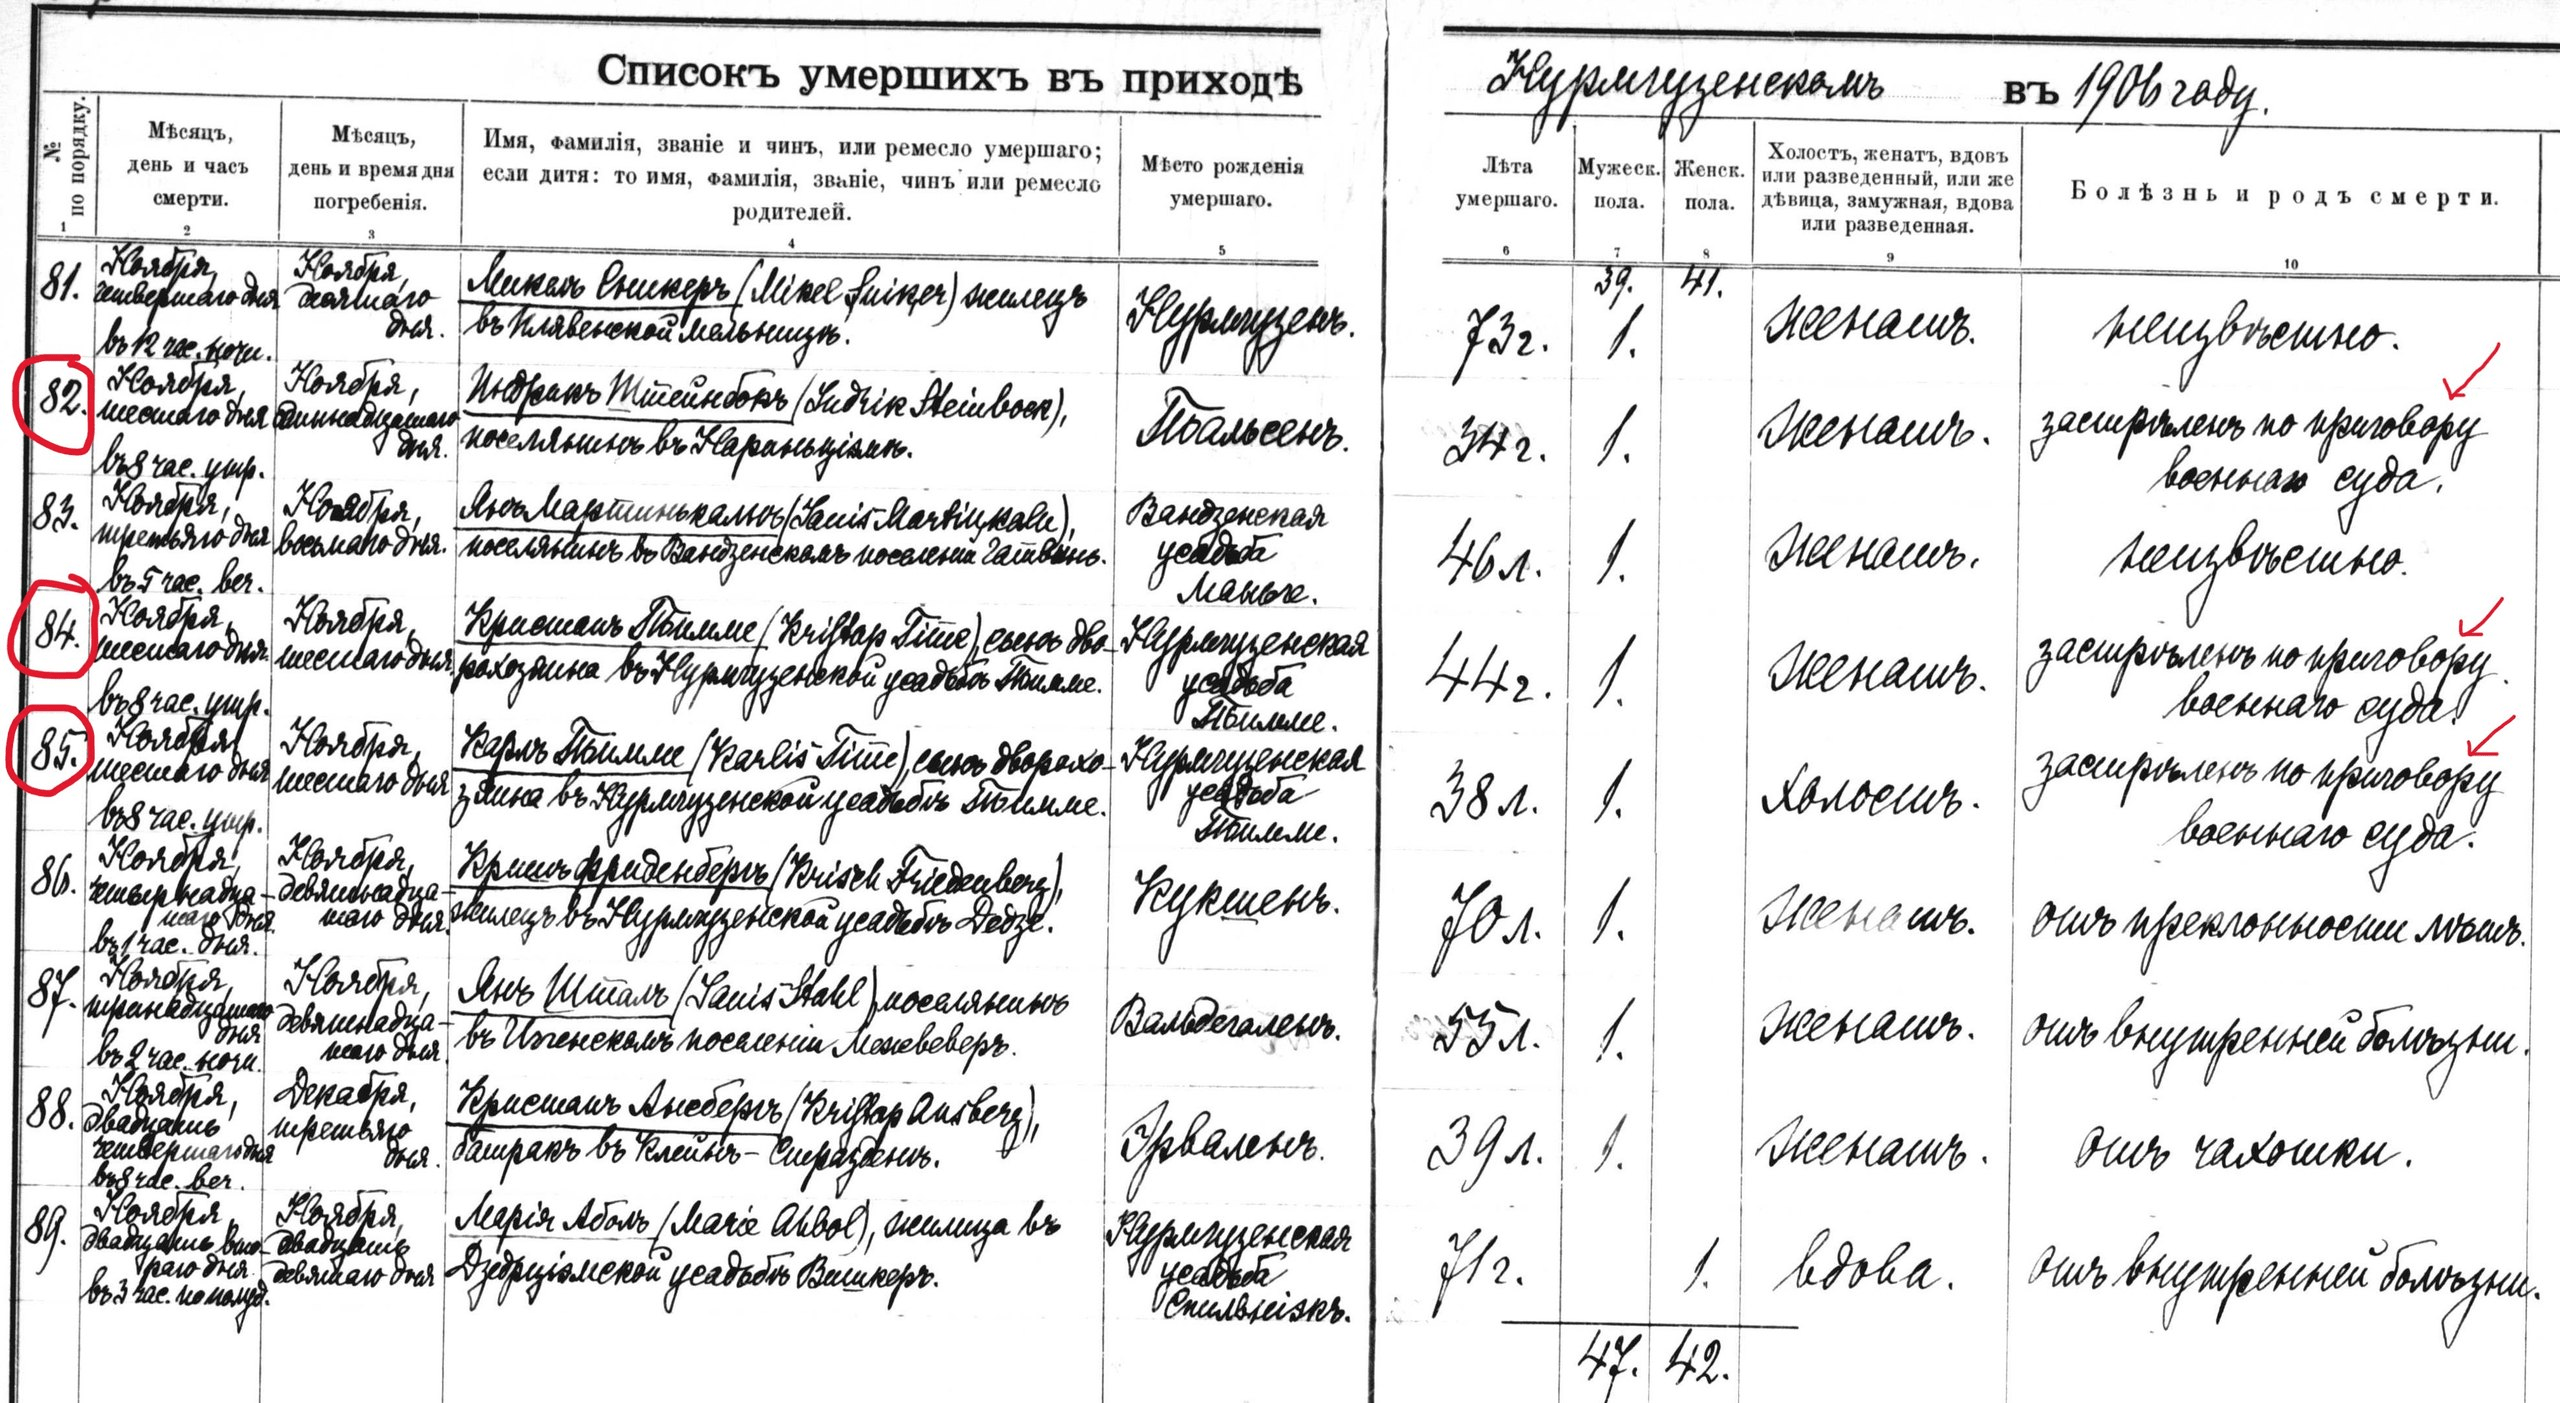 Списокъ умершихъ въ приходѣ Нурмгузенскомъ въ 1906 году.
№ по порядку.
Мѣсяцъ,
день и часъ
смерти.
Мѣсяцъ,
день и время дня
погребенія.
Имя, фамилія, званіе и чинъ, или ремесло умершаго;
если дитя: то имя, фамилія, званіе, чинъ или ремесло
родителей.
Мѣсто рожденія
умершаго.
Лѣта
умершаго.
Мужеск.
пола.
Женск.
пола.
Холостъ, женатъ, вдовъ
или разведенный, или же
дѣвица, замужная, вдова
или разведенная.
Болѣзнь и родъ смерти.
1 2 3 4 5 6 7 8 9 10
39. 41.
81.
Ноября,
четвертаго дня
въ 12 час. ночи.
Ноября,
десятаго
дня.
Микель Сникеръ (Mikel Sniker) жилецъ
въ Клявенской мельницѣ.
Нурмгузенъ.
73 г.
1.
Женатъ.
неизвѣстно.
82.
Ноября,
шестаго дня
въ 8 час. утр.
Ноября,
одиннадцатаго
дня.
Индрикъ Штейнбокъ (Indrik Steinbock),
поселянинъ въ
Тальсенъ.
34 г.
1.
Женатъ.
застрѣленъ по приговору
военнаго суда.
83.
Ноября,
третьяго дня
въ 5 час. веч.
Ноября,
восьмаго дня.
Янъ Мартинькалнъ (Janis Martiņkaln),
поселянинъ въ Вандзенскомъ поселеніи
Вандзенская
усадьба
46 л.
1.
Женатъ.
неизвѣстно.
84.
Ноября,
шестаго дня
въ 8 час. утр.
Ноября,
шестаго дня
Кристапъ Тимме (Kristap Timme), сынъ дво-
рохозяина въ Нурмгузенской усадьбѣ Тимме.
Нурмгузенская
усадьба
Тимме.
44 г.
1.
Женатъ.
застрѣленъ по приговору
военнаго суда.
85.
Ноября
шестаго дня
въ 8 час. утр.
Ноября,
шестаго дня
Карлъ Тимме (Karlis Timme), сынъ дворохо-
зяина въ Нурмгузенской усадьбѣ Тимме.
Нурмгузенская
усадьба
Тимме.
38 л.
1.
Холостъ.
застрѣленъ по приговору
военнаго суда.
86.
Ноября,
четырнадца-
таго дня
въ 1 час. дня.
Ноября,
девятнадца-
таго дня.
Кришъ Фриденбергъ (Krisch Friedenberg),
жилецъ въ Нурмгузенской усадьбѣ Дедзе.
Кукшенъ.
70 л.
1.
Женатъ.
отъ преклонности лѣтъ.
87.
Ноября,
тринадцатаго
дня
въ 2 час. ночи.
Ноября,
девятнадца-
таго дня.
Янъ Шталь (Janis Stahl), поселянинъ
въ поселеніи Межвеверъ.
Вальдегаленъ.
55 л.
1.
Женатъ.
отъ внутренней болѣзни.
88.
Ноября,
двадцать
четвертаго дня
въ 8 час. веч.
Декабря,
третьяго
дня.
Кристапъ Ансбергъ (Kristap Ansberg),
батракъ въ Клейнъ-Стразденъ.
Эрваленъ.
39 л.
1.
Женатъ.
отъ чахотки.
89.
Ноября,
двадцать вто-
раго дня
въ 3 час. полуд.
Ноября,
двадцать
девятаго дня
Марія Аболъ (Marie Abbol), жилица въ
Дзедрціэмской усадьбѣ Вишкеръ.
Нурмгузенская
усадьба
71 г.
1.
вдова.
отъ внутренней болѣзни.
47. 42.